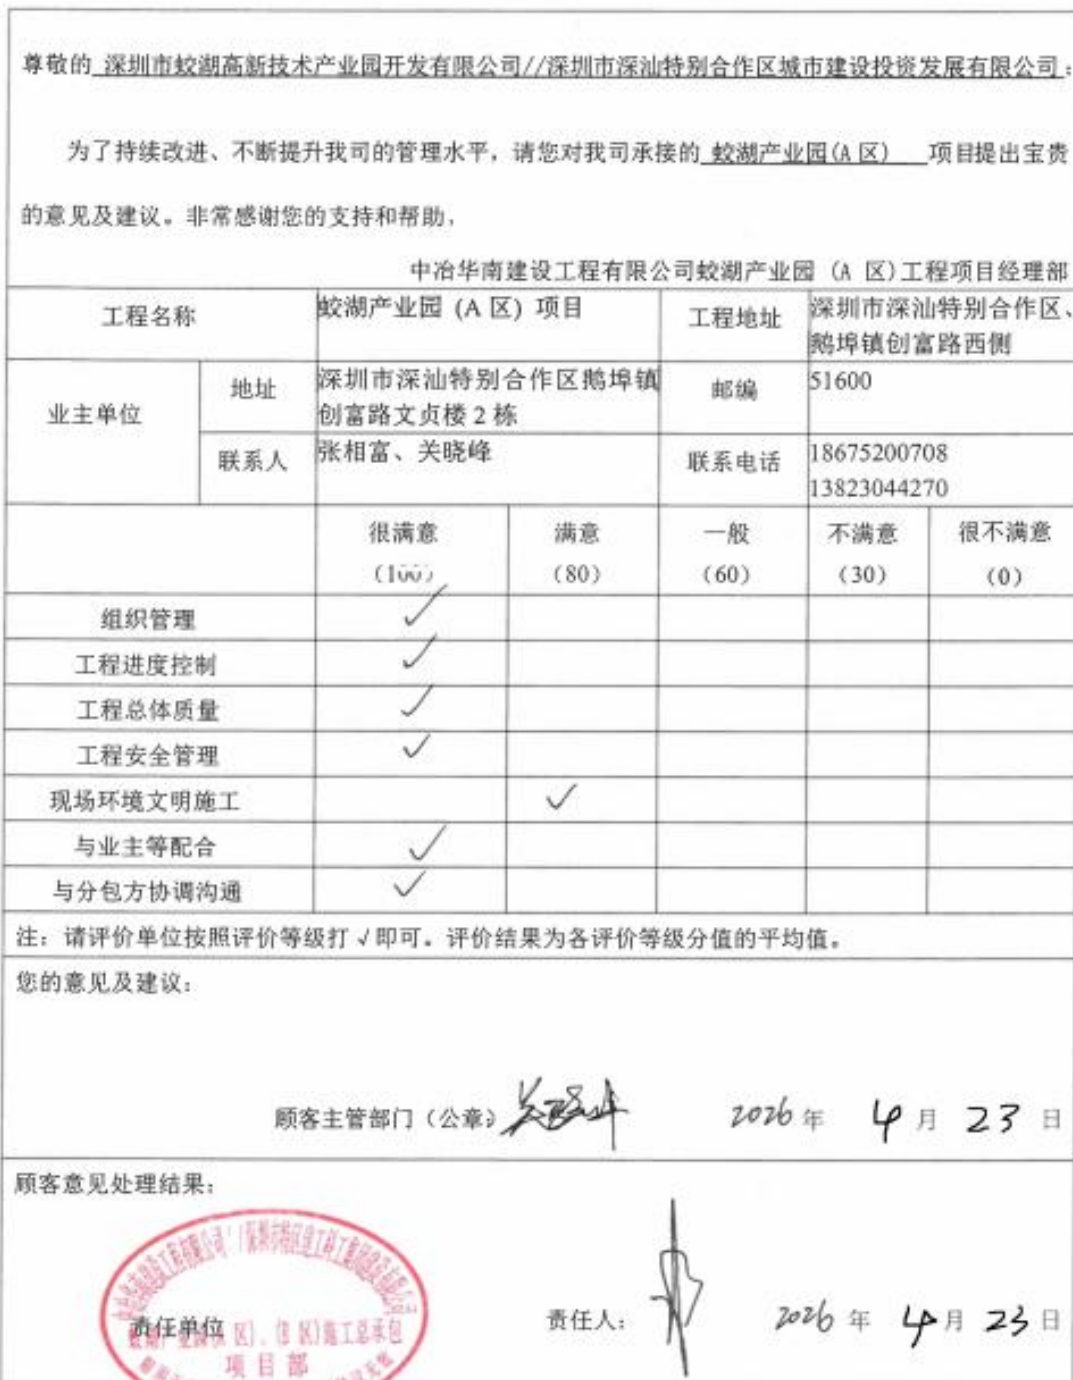 尊敬的 深圳市蛟湖高新技术产业园开发有限公司//深圳市深汕特别合作区城市建设投资发展有限公司：
为了持续改进、不断提升我司的管理水平，请您对我司承接的 蛟湖产业园(A 区) 项目提出宝贵
的意见及建议。非常感谢您的支持和帮助，
中冶华南建设工程有限公司蛟湖产业园（A 区)工程项目经理部
工程名称 蛟湖产业园 (A 区) 项目 工程地址 深圳市深汕特别合作区、
鹅埠镇创富路西侧
业主单位 地址 深圳市深汕特别合作区鹅埠镇
创富路文贞楼 2 栋 邮编 51600
联系人 张相富、关晓峰 联系电话 18675200708
13823044270
很满意 满意 一般 不满意 很不满意
（100） （80） （60） （30） （0）
组织管理 ✓
工程进度控制 ✓
工程总体质量 ✓
工程安全管理 ✓
现场环境文明施工 ✓
与业主等配合 ✓
与分包方协调沟通 ✓
注：请评价单位按照评价等级打 √ 即可。评价结果为各评价等级分值的平均值。
您的意见及建议：
顾客主管部门（公章） 2026 年 4 月 23 日
顾客意见处理结果：
责任单位 责任人： 2026 年 4 月 23 日
项目部